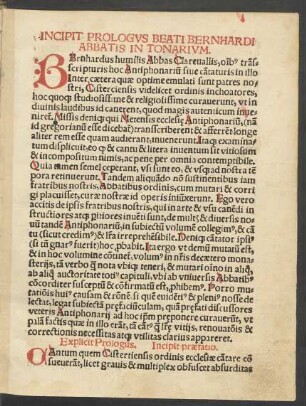 INCIPIT PROLOGVS BEATI BERNHARDI
ABBATIS IN TONARIVM.
BErnhardus humilis Abbas Clareuallis, oībꝰ trās-
scripturis hoc Antiphonariū siue cātaturis in illo
Inter cætera quæ optime emulati sunt patres no-
stri, Cisterciensis videlicet ordinis inchoatores,
hoc quoq studiosissime & religiosissime curauerunt, vt in
diuinis laudibus id canerent, quod magis autenticum inue-
niret. Missis deniq qui Metensis ecclesiæ Antiphonariū, (nā
id gregorianū esse dicebat) transcriberent & afferrēt longe
aliter remesse quam audierant, inuenerūt. Itaq examina-
tum displicuit, eo q & cantu & littera inuentum sit viciosum
et incompositum nimis, ac pene per omnia contemptibile.
Quia tamen semel ceperant, vsi sunt eo, & vsq ad nostra tē
pora retinuerunt. Tandem aliquādo nō sustinentibus iam
fratribus nostris, Abbatibus ordinis, cum mutari & corri
gi placuisset, curæ nostræ id operis iniūxerunt. Ego vero
accitis de ipsis fratribus nostris, qui in arte & vsu canēdi in-
structiores atq peritiores inuēti sunt, de mult & diuersis no
uū tandē Antiphonariū, in subiectū volumē collegimꝰ, & cā
tu (sicut credimꝰ) & lra irreprehēsibile. Deniq cātator ipsiꝰ
(si tn̄ gnarꝰ fuerit) hoc, pbabit. Ita ergo vt demū mutatū est,
& in hoc volumine cōtinet, volumꝰ in nr̄is decætero mona-
sterijs, tā verbo q̄ nota vbiq teneri, & mutari oīno in aliq,
ab aliq auctoritate totiꝰ capituli, vbi ab vniuersis Abbatibꝰ
cōcorditer susceptū & cōfirmatū est, phibemꝰ. Porro mu-
tatiōis huiꝰ causam & rōnē si quē euidētiꝰ & pleniꝰ nosse de
lectat, legat subiectā præfaciūculam, quā præfati discussores
veteris Antiphonarij ad hoc ipm̄ præponere curauerūt, vt
palā factis quæ in illo erāt, tā cātꝰ q̄ lr̄e vitijs, renouatōis &
correctionis necessitas atq vtilitas clarius appareret.
Explicit Prologus. Incipit præfatio.
QAntum quem Cistertiensis ordinis ecclesiæ cātare cō
sueuerāt, licet grauis & multiplex obfuscet absurditas